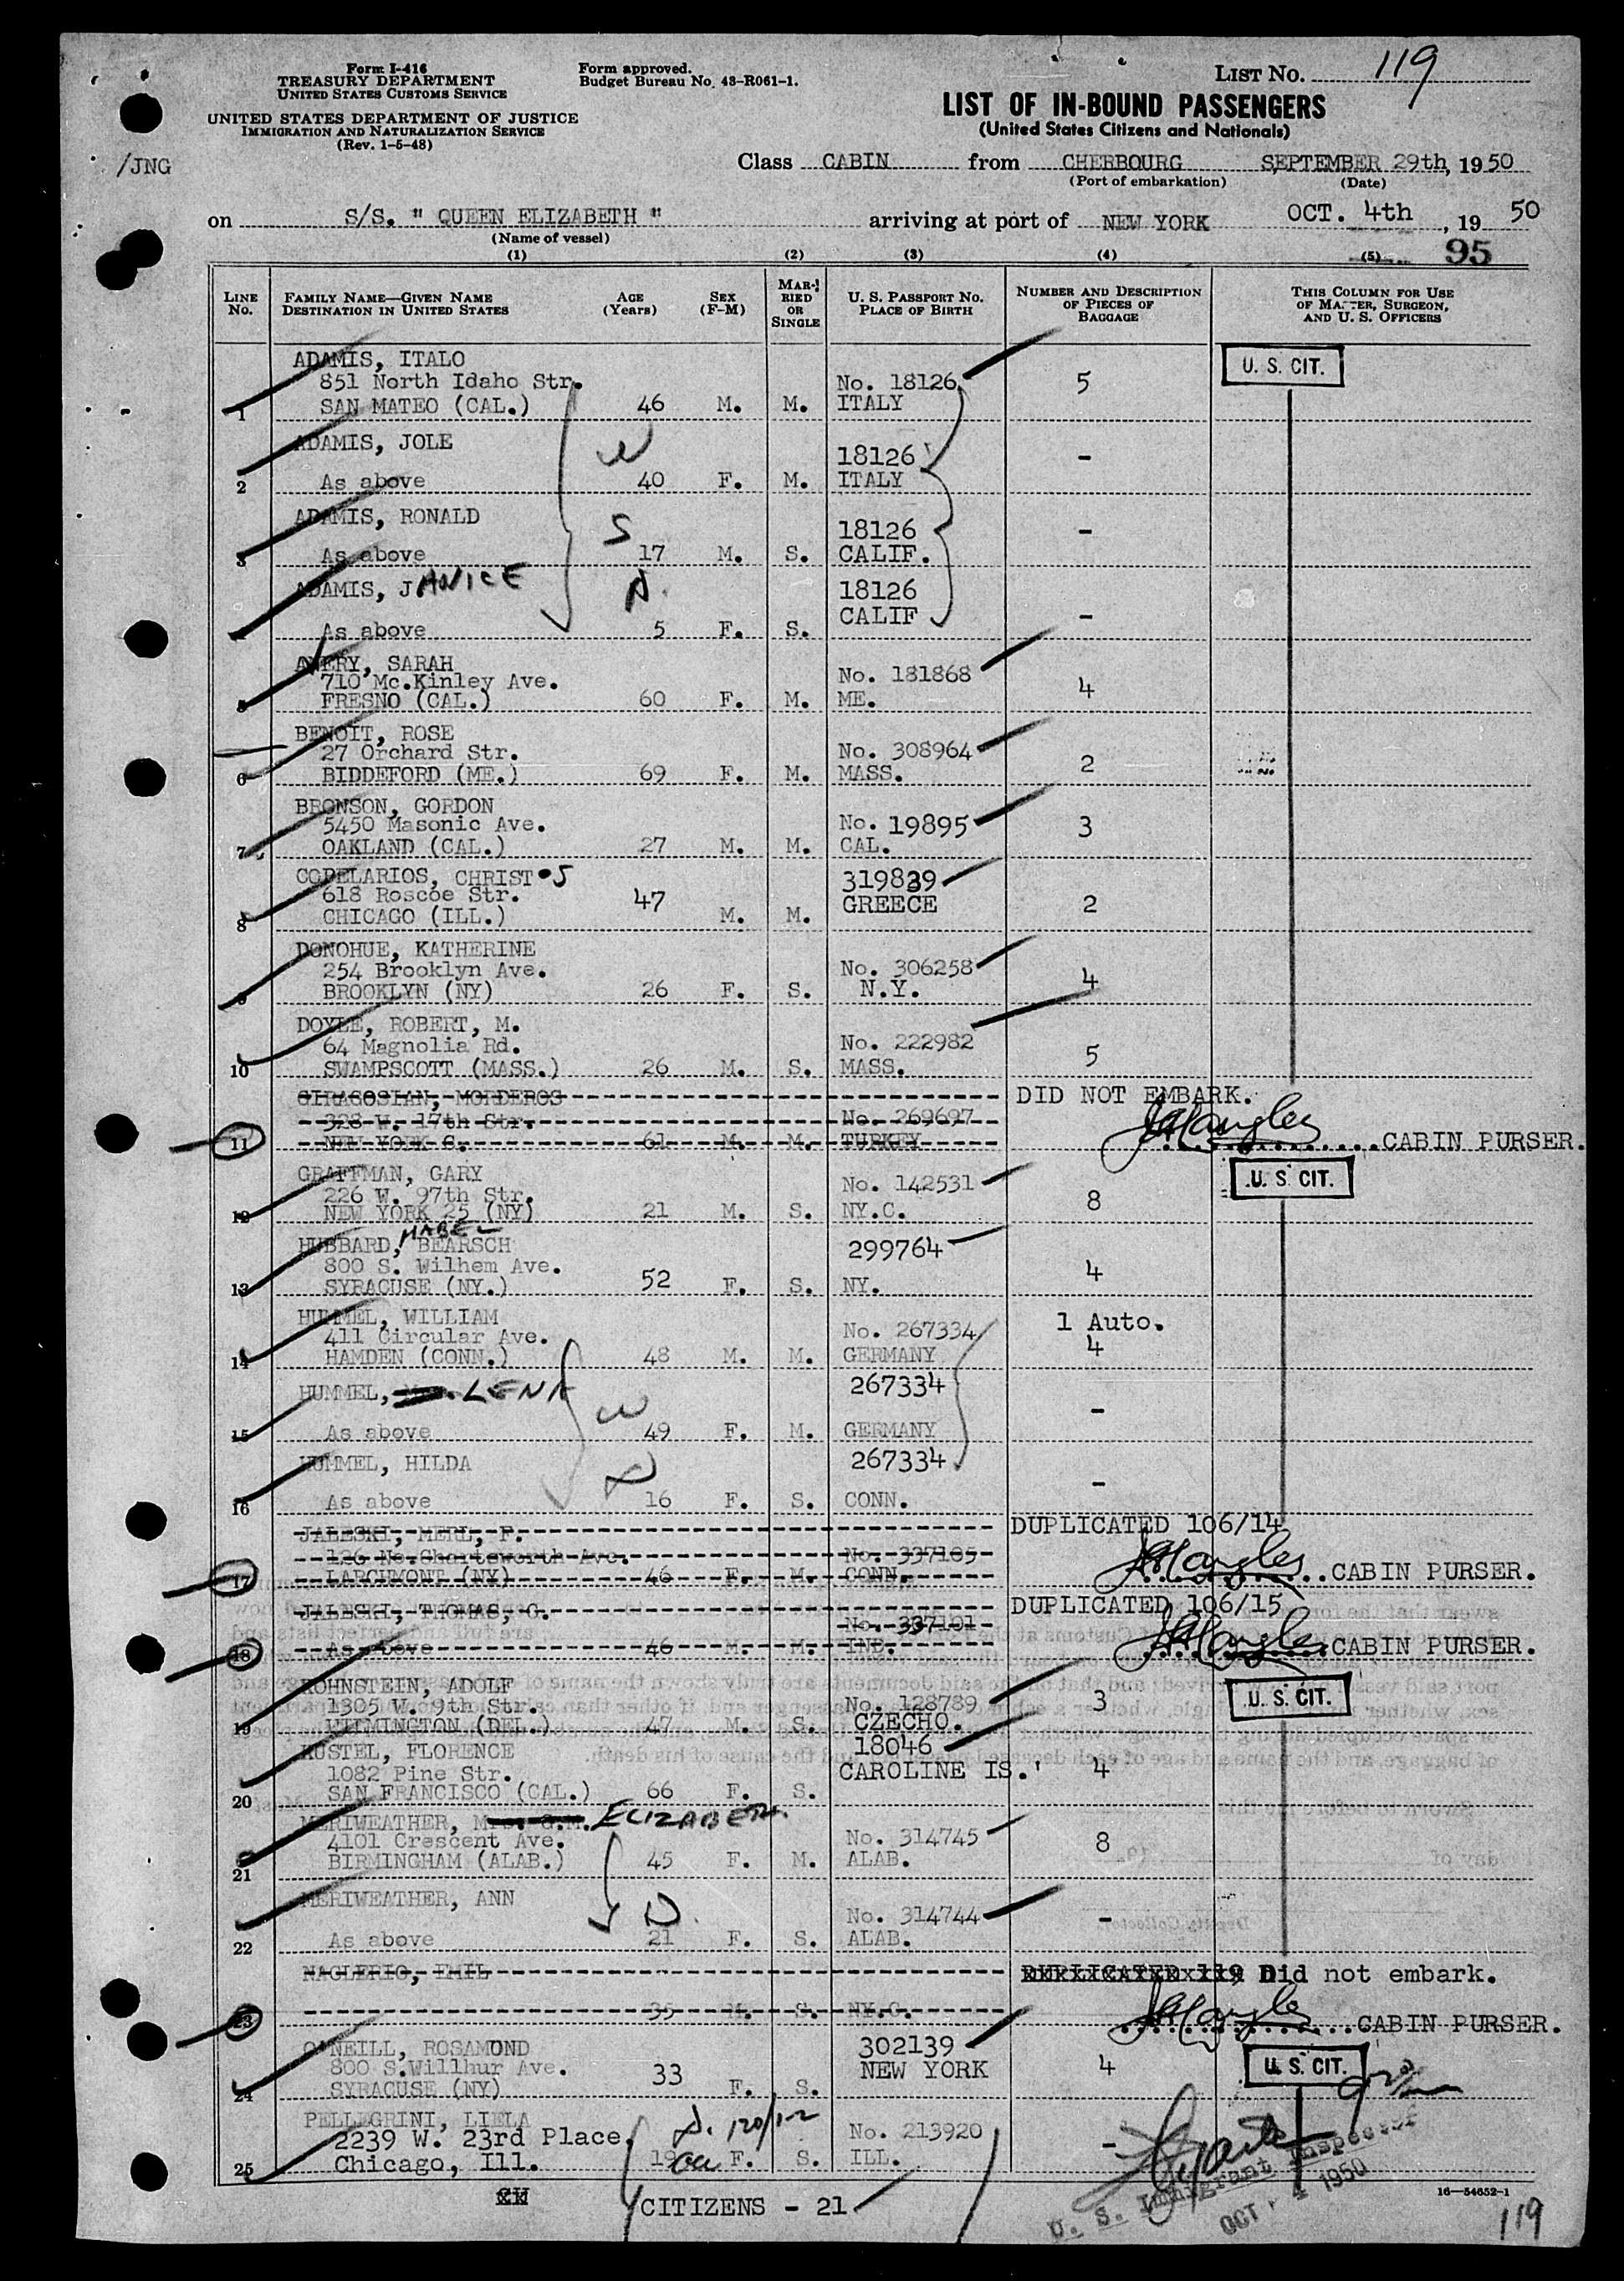 Form I-416
TREASURY DEPARTMENT
UNITED STATES CUSTOMS SERVICE
UNITED STATES DEPARTMENT OF JUSTICE
IMMIGRATION AND NATURALIZATION SERVICE
(Rev. 1-5-48)
Form approved.
Budget Bureau No. 43-R061-1.
LIST No. 119
LIST OF IN-BOUND PASSENGERS
(United States Citizens and Nationals)
/JNG
Class CABIN from CHERBOURG SEPTEMBER 29th, 1950
(Port of embarkation) (Date)
on S/S. " QUEEN ELIZABETH " arriving at port of NEW YORK OCT. 4th, 19 50
(Name of vessel)
(1) (2) (3) (4) (5) 95
LINE No. FAMILY NAME—GIVEN NAME DESTINATION IN UNITED STATES AGE (Years) SEX (F-M) MARRIED OR SINGLE U. S. PASSPORT No. PLACE OF BIRTH NUMBER AND DESCRIPTION OF PIECES OF BAGGAGE THIS COLUMN FOR USE OF MASTER, SURGEON, AND U. S. OFFICERS
ADAMIS, ITALO U. S. CIT.
851 North Idaho Str. No. 18126 5
1 SAN MATEO (CAL.) 46 M. M. ITALY
ADAMIS, JOLE W 18126 -
2 As above 40 F. M. ITALY
ADAMIS, RONALD S 18126 -
3 As above 17 M. S. CALIF.
ADAMIS, JANICE D. 18126
CALIF -
4 As above 5 F. S.
AVERY, SARAH
710 Mc.Kinley Ave. No. 181868 4
5 FRESNO (CAL.) 60 F. M. ME.
BENOIT, ROSE
27 Orchard Str. No. 308964 2
6 BIDDEFORD (ME.) 69 F. M. MASS.
BRONSON, GORDON
5450 Masonic Ave. No. 19895 3
7 OAKLAND (CAL.) 27 M. M. CAL.
CODELARIOS, CHRISTOS 319839
618 Roscoe Str. 47 GREECE 2
8 CHICAGO (ILL.) M. M.
DONOHUE, KATHERINE
254 Brooklyn Ave. No. 306258 4
9 BROOKLYN (NY) 26 F. S. N.Y.
DOYLE, ROBERT, M.
64 Magnolia Rd. No. 222982 5
10 SWAMPSCOTT (MASS.) 26 M. S. MASS.
GIRAGOSIAN, MORDEROS DID NOT EMBARK.
328 W. 17th Str. No. 269697
11 NEW YORK C. 61 M. M. TURKEY CABIN PURSER.
GRAFFMAN, GARY U. S. CIT.
226 W. 97th Str. No. 142531 8
12 NEW YORK 25 (NY) 21 M. S. NY.C.
HUBBARD, MABEL BEARSCH 299764
800 S. Wilhem Ave. 4
13 SYRACUSE (NY.) 52 F. S. NY.
HUMMEL, WILLIAM 1 Auto.
411 Circular Ave. No. 267334 4
14 HAMDEN (CONN.) 48 M. M. GERMANY
HUMMEL, LENA W 267334 -
15 As above 49 F. M. GERMANY
HUMMEL, HILDA D 267334 -
16 As above 16 F. S. CONN.
JALESKI, MERL, F. DUPLICATED 106/14
126 No.Chartsworth Ave. No. 337105
17 LARCHMONT (NY) 46 F. M. CONN. CABIN PURSER.
JALESKI, THOMAS, C. DUPLICATED 106/15
No. 337101
18 As above 46 M. M. IND. CABIN PURSER.
KOHNSTEIN, ADOLF U. S. CIT.
1305 W. 9th Str. No. 128789 3
19 WILMINGTON (DEL.) 47 M. S. CZECHO.
KUSTEL, FLORENCE 18046
1082 Pine Str. CAROLINE IS. 4
20 SAN FRANCISCO (CAL.) 66 F. S.
MERIWEATHER, ELIZABETH
4101 Crescent Ave. No. 314745 8
21 BIRMINGHAM (ALAB.) 45 F. M. ALAB.
MERIWEATHER, ANN D. No. 314744 -
22 As above 21 F. S. ALAB.
NAGLERIO, EMIL DUPLICATED 119 Did not embark.
23 35 M. S. NY.C. CABIN PURSER.
O'NEILL, ROSAMOND 302139
800 S.Willhur Ave. 33 NEW YORK 4 U. S. CIT.
24 SYRACUSE (NY) F. S.
PELLEGRINI, LIELA D. 120/1-2
2239 W. 23rd Place. No. 213920 -
25 Chicago, Ill. 19 F. S. ILL.
CITIZENS - 21
U. S. Immigrant Inspector
OCT 4 1950
16—54652-1
119